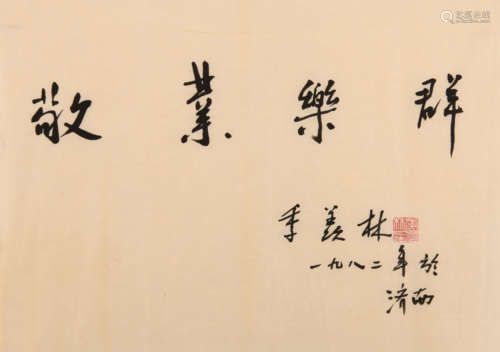 敬業樂群
季羨林
一九八二年於
濟南